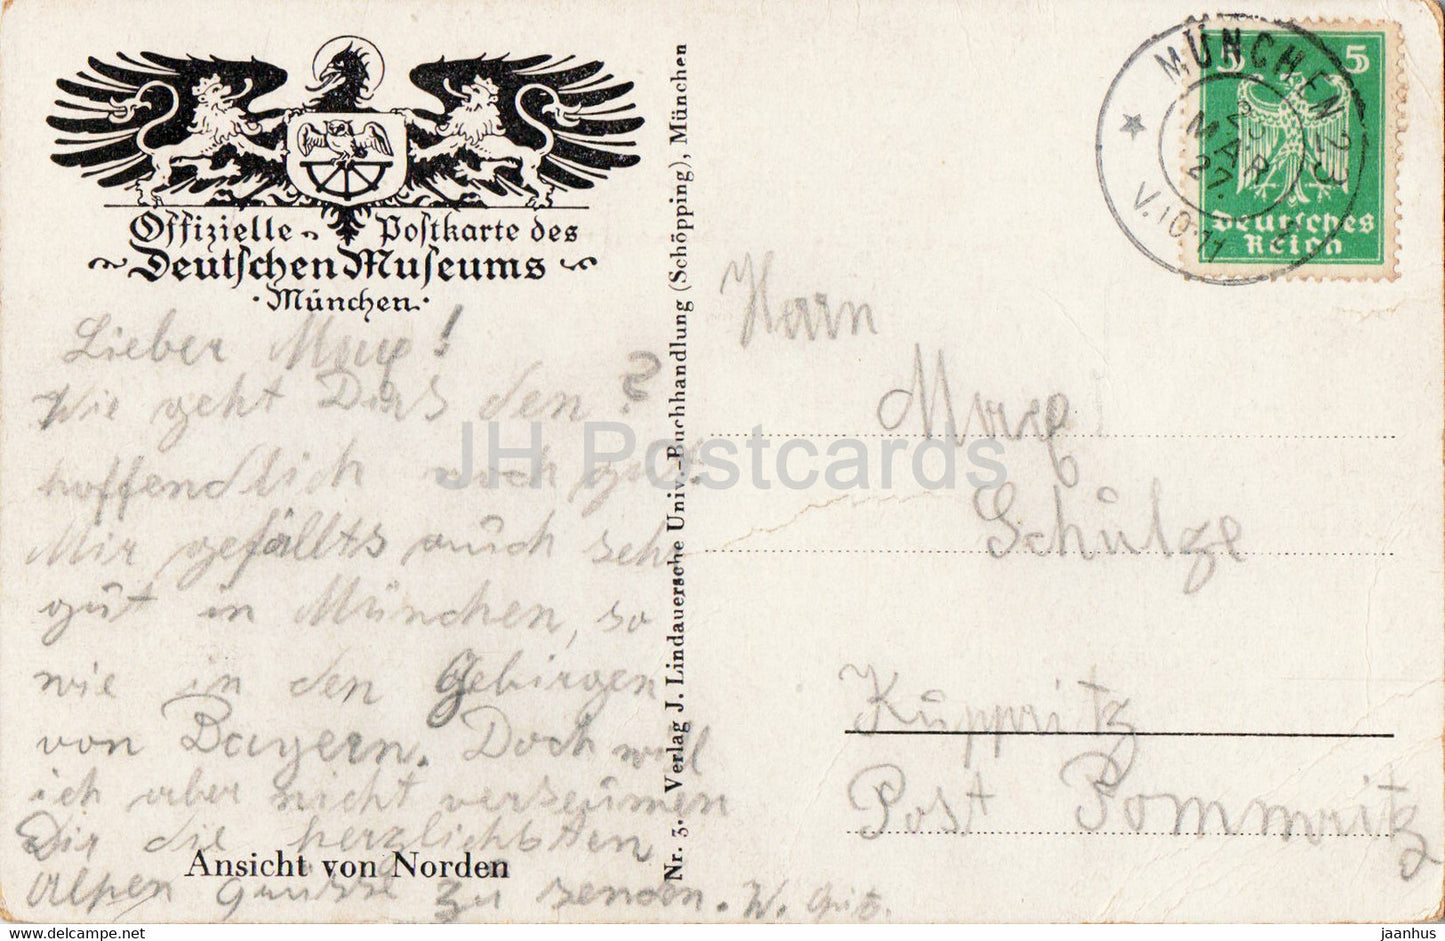 Offizielle Postkarte des
Deutschen Museums
München
Lieber Max!
Wie geht Dirs den?
hoffendlich noch gut.
Mir gefällts auch sehr
gut in München, so
wie in den Gebirgen
von Bayern. Doch will
ich aber nicht verseumen
Dir die herzlichsten
Alpen Grüsse zu senden. W. Gut.
Ansicht von Norden
Nr. 3. Verlag J. Lindauersche Univ.-Buchhandlung (Schöpping), München
MÜNCHEN
MAR
27
V.10-11
5 5
Deutsches
Reich
Herrn
Max
Schulze
Kuppritz
Post Pommritz
JH Postcards
jaanhus
delcampe.net